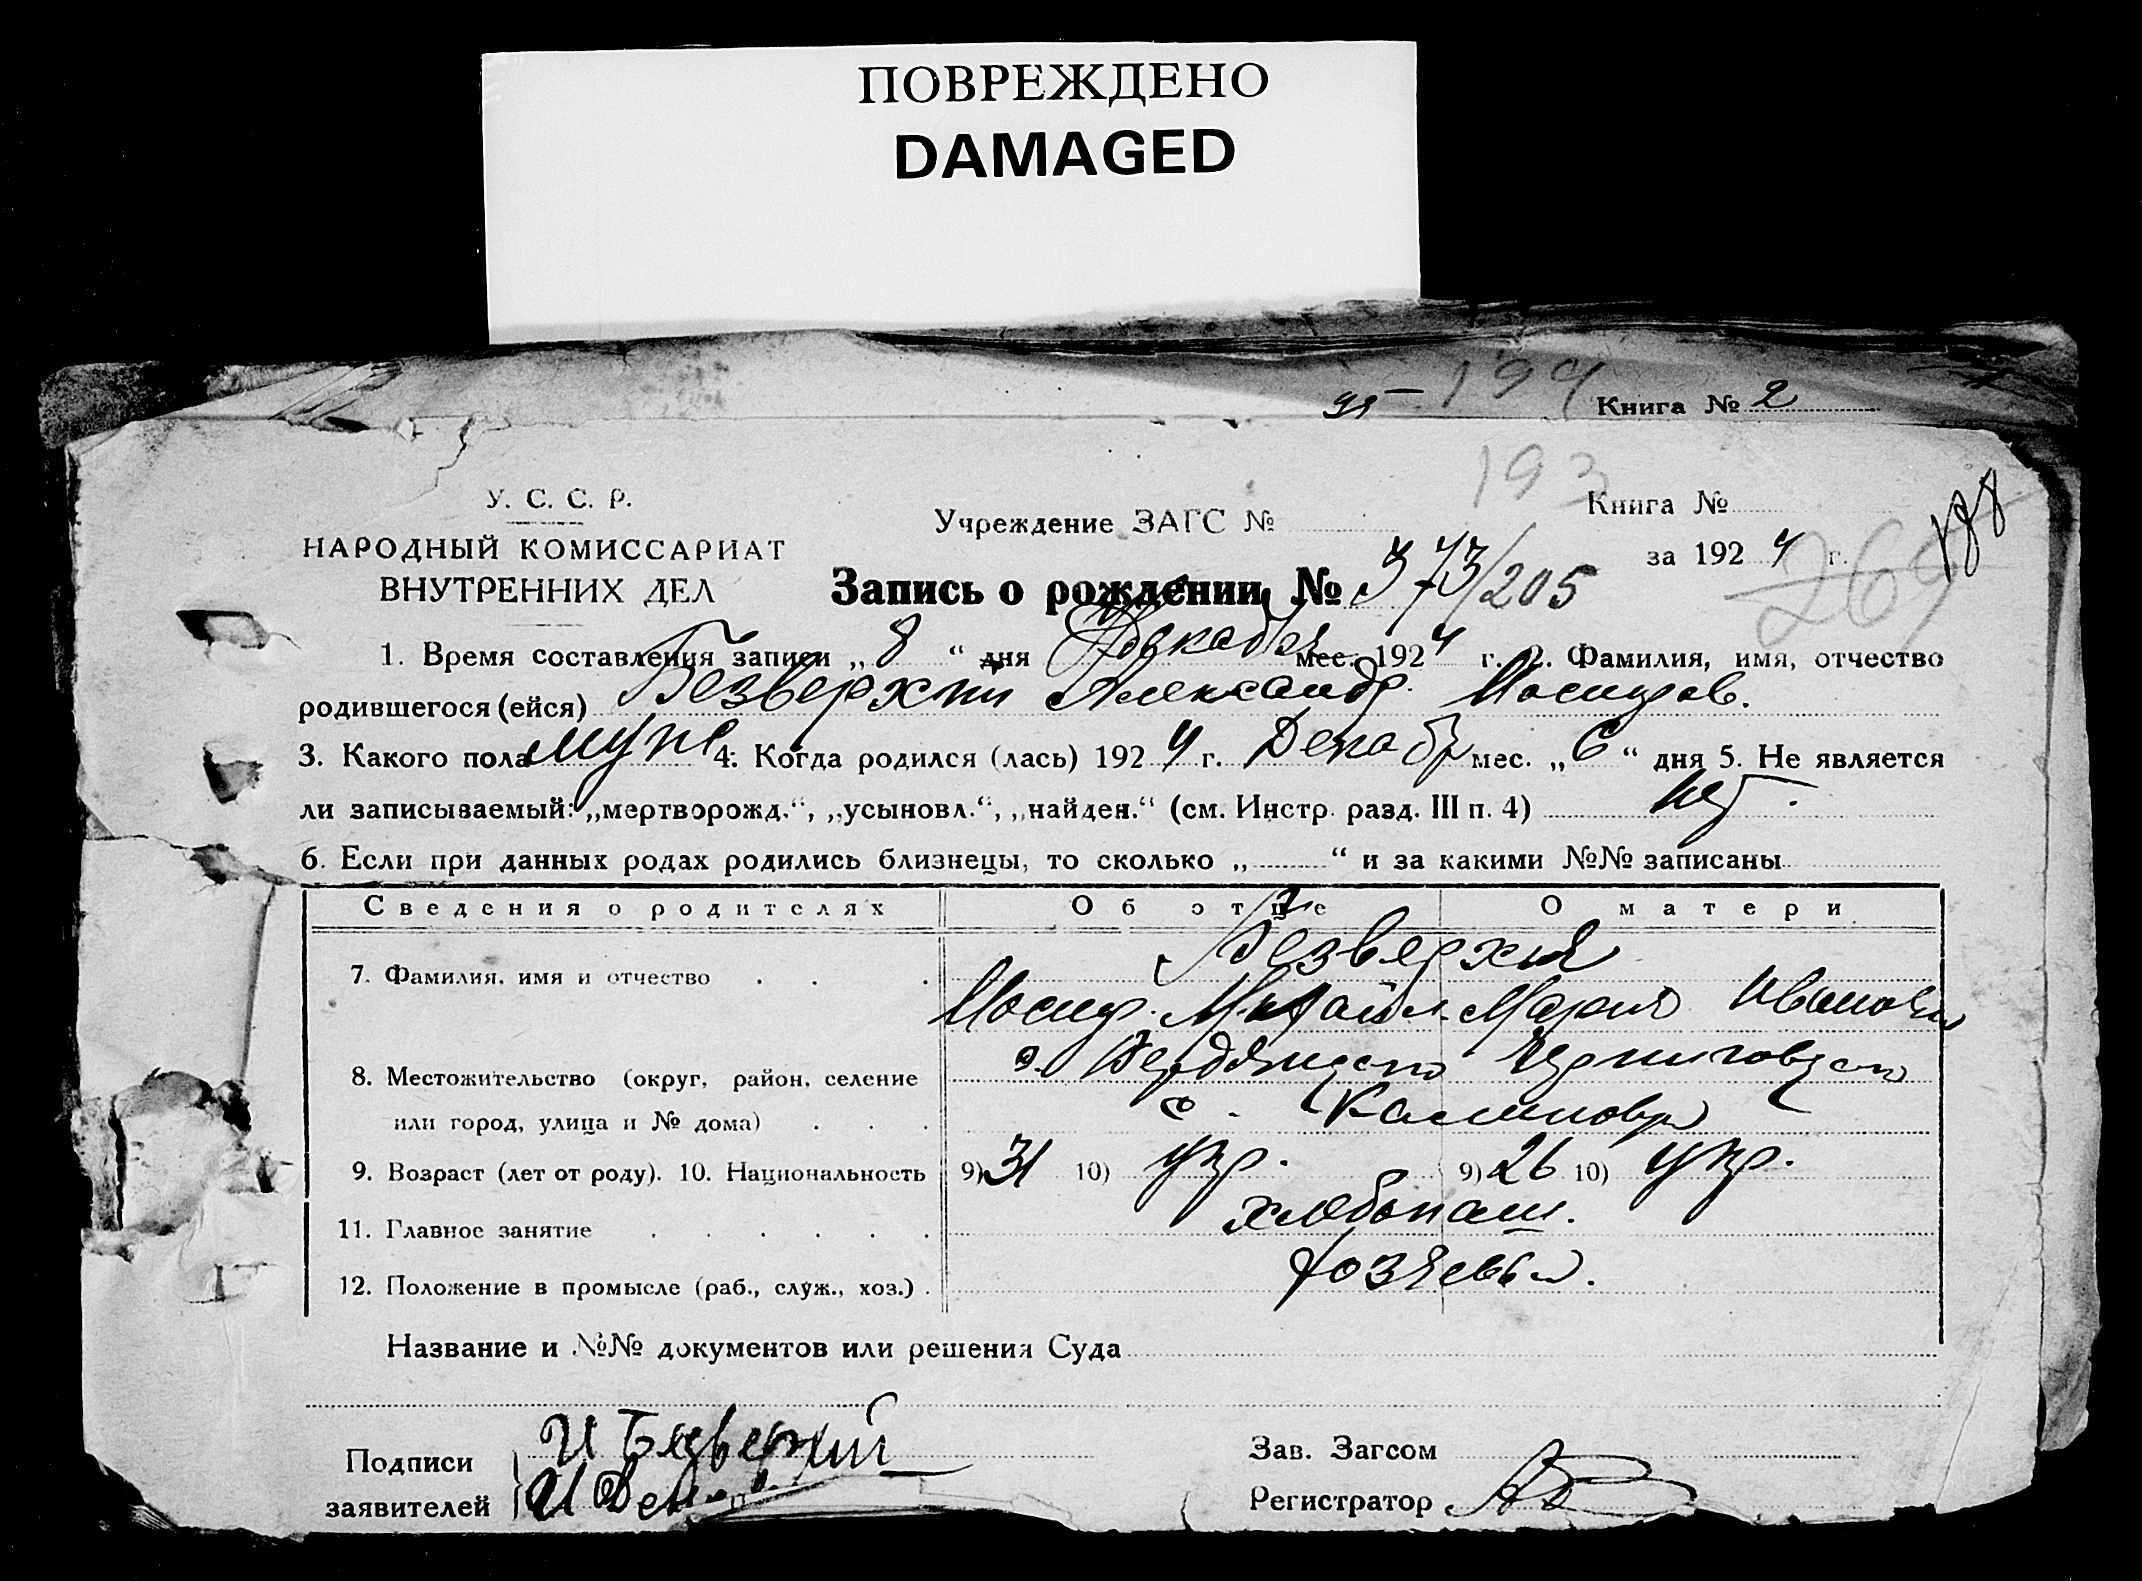 ПОВРЕЖДЕНО
DAMAGED
199 Книга № 2
193 Книга №
188
У. С. С. Р.
Учреждение ЗАГС №
НАРОДНЫЙ КОМИССАРИАТ
за 1924 г.
ВНУТРЕННИХ ДЕЛ
Запись о рождении № 373/205
269
1. Время составления записи „ 8 “ дня Декабря мес. 1924 г. 2. Фамилия, имя, отчество
родившегося (ейся) Безверхий Александр. Иосифов.
3. Какого пола муж 4. Когда родился (лась) 1924 г. Декабр мес. „ 6 “ дня 5. Не является
ли записываемый: „мертворожд.“, „усыновл.“, „найден.“ (см. Инстр. разд. III п. 4) нет.
6. Если при данных родах родились близнецы, то сколько „ “ и за какими №№ записаны
Сведения о родителях Об отце О матери
Безверхия
7. Фамилия, имя и отчество
Иосиф. Михайл. Мария Иванова
8. Местожительство (округ, район, селение о. Бердянского Черниговского
или город, улица и № дома) с. Калиновка
9. Возраст (лет от роду). 10. Национальность 9) 31 10) укр. 9) 26 10) укр.
11. Главное занятие хлебопаш.
12. Положение в промысле (раб., служ., хоз.) хозяева.
Название и №№ документов или решения Суда
Подписи И Безверхий Зав. Загсом
заявителей И Регистратор